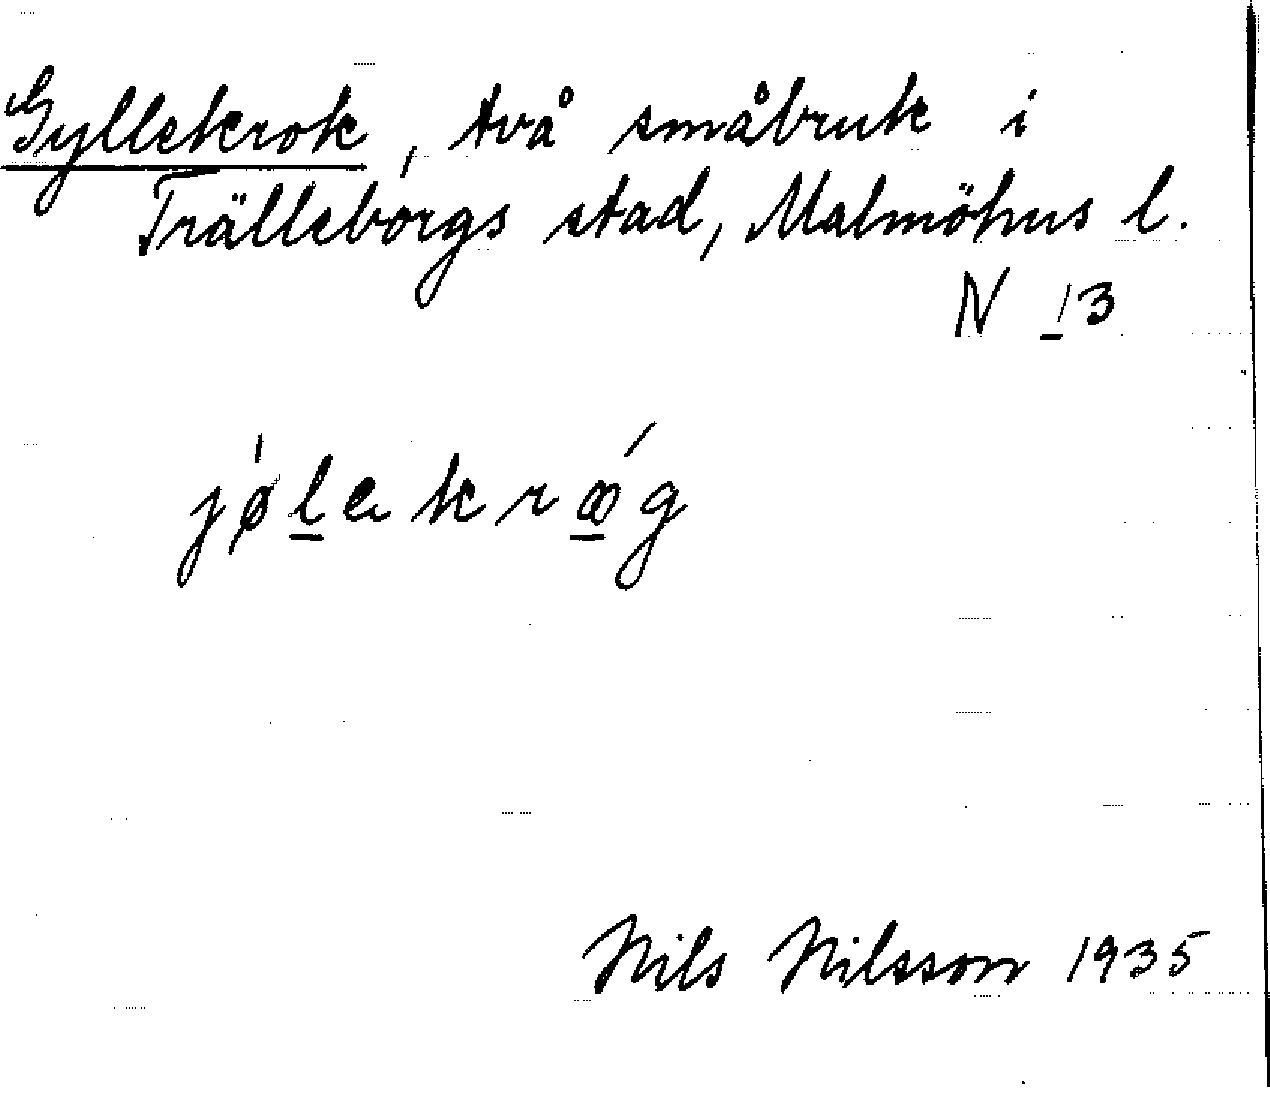 Gyllekrok, två småbruk i
Trälleborgs stad, Malmöhus l.
N 13
jø̍l̲ekrœ̲́g
Nils Nilsson 1935